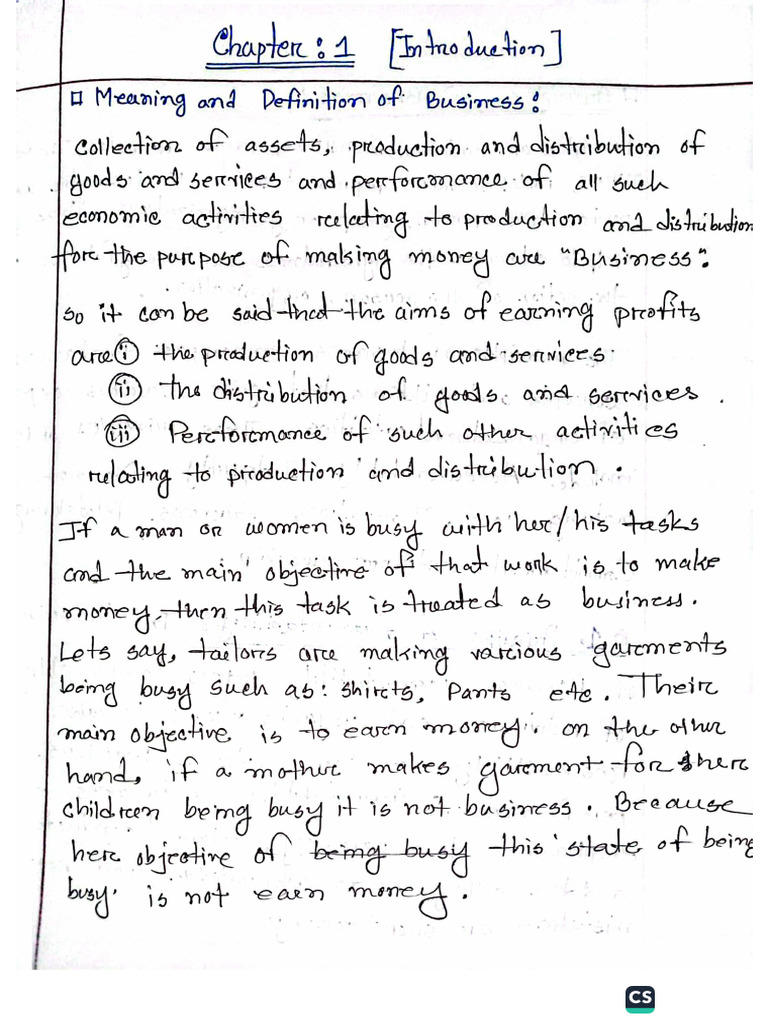 Chapter: 1 [Introduction]
Meaning and Definition of Business:
Collection of assets, production and distribution of
goods and services and performance of all such
economic activities relating to production and distribution
for the purpose of making money are "Business".
So it can be said that the aims of earning profits
are (i) the production of goods and services.
(ii) the distribution of goods and services.
(iii) Performance of such other activities
relating to production and distribution.
If a man or women is busy with her/his tasks
and the main objective of that work is to make
money, then this task is treated as business.
Lets say, tailors are making various garments
being busy such as: shirts, Pants etc. Their
main objective is to earn money. on the other
hand, if a mother makes garment for her
children being busy it is not business. Because
her objective of being busy this state of being
busy is not earn money.
CS